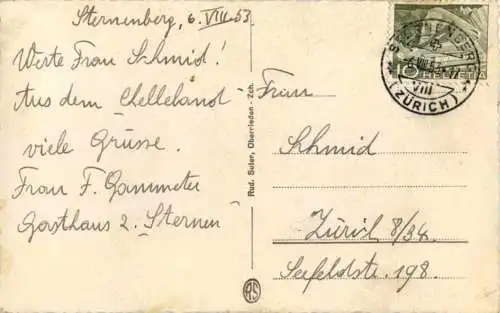 Sternenberg, 6. VIII. 53
Werte Frau Schmid!
Aus dem Chellehand
viele Grüsse.
Frau F. Gammeter
Gasthaus z. Sternen
Rud. Suter, Oberrieden - Zch.
Frau
Schmid
Zürich 8/34.
Seefeldstr. 198.
STERNENBERG
6.VIII.53
VIII
(ZÜRICH)
10
HELVETIA
RS